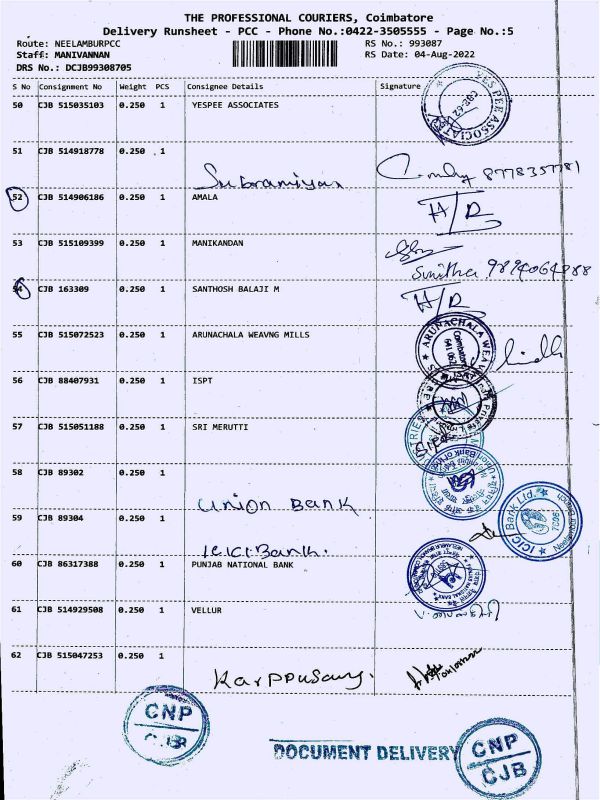 THE PROFESSIONAL COURIERS, Coimbatore
Delivery Runsheet - PCC - Phone No.:0422-3505555 - Page No.:5
Route: NEELAMBURPCC RS No.: 993087
Staff: MANIVANNAN RS Date: 04-Aug-2022
DRS No.: DCJB99308705
S No Consignment No Weight PCS Consignee Details Signature
50 CJB 515035103 0.250 1 YESPEE ASSOCIATES
YES PEE ASSOCIATES
51 CJB 514918778 0.250 1
Subramiyan 8778357781
52 CJB 514906186 0.250 1 AMALA H/R
53 CJB 515109399 0.250 1 MANIKANDAN
Sunitha 9894064988
54 CJB 163309 0.250 1 SANTHOSH BALAJI M H/R
55 CJB 515072523 0.250 1 ARUNACHALA WEAVNG MILLS
ARUNACHALA WEAV Coimbatore 641 062
56 CJB 88407931 0.250 1 ISPT
57 CJB 515051188 0.250 1 SRI MERUTTI
58 CJB 89302 0.250 1
Union Bank
59 CJB 89304 0.250 1
ICICI Bank Ltd.
ICICI Bank.
60 CJB 86317388 0.250 1 PUNJAB NATIONAL BANK
61 CJB 514929508 0.250 1 VELLUR
62 CJB 515047253 0.250 1
Karppusamy.
CNP
CJB
DOCUMENT DELIVERY
CNP
CJB